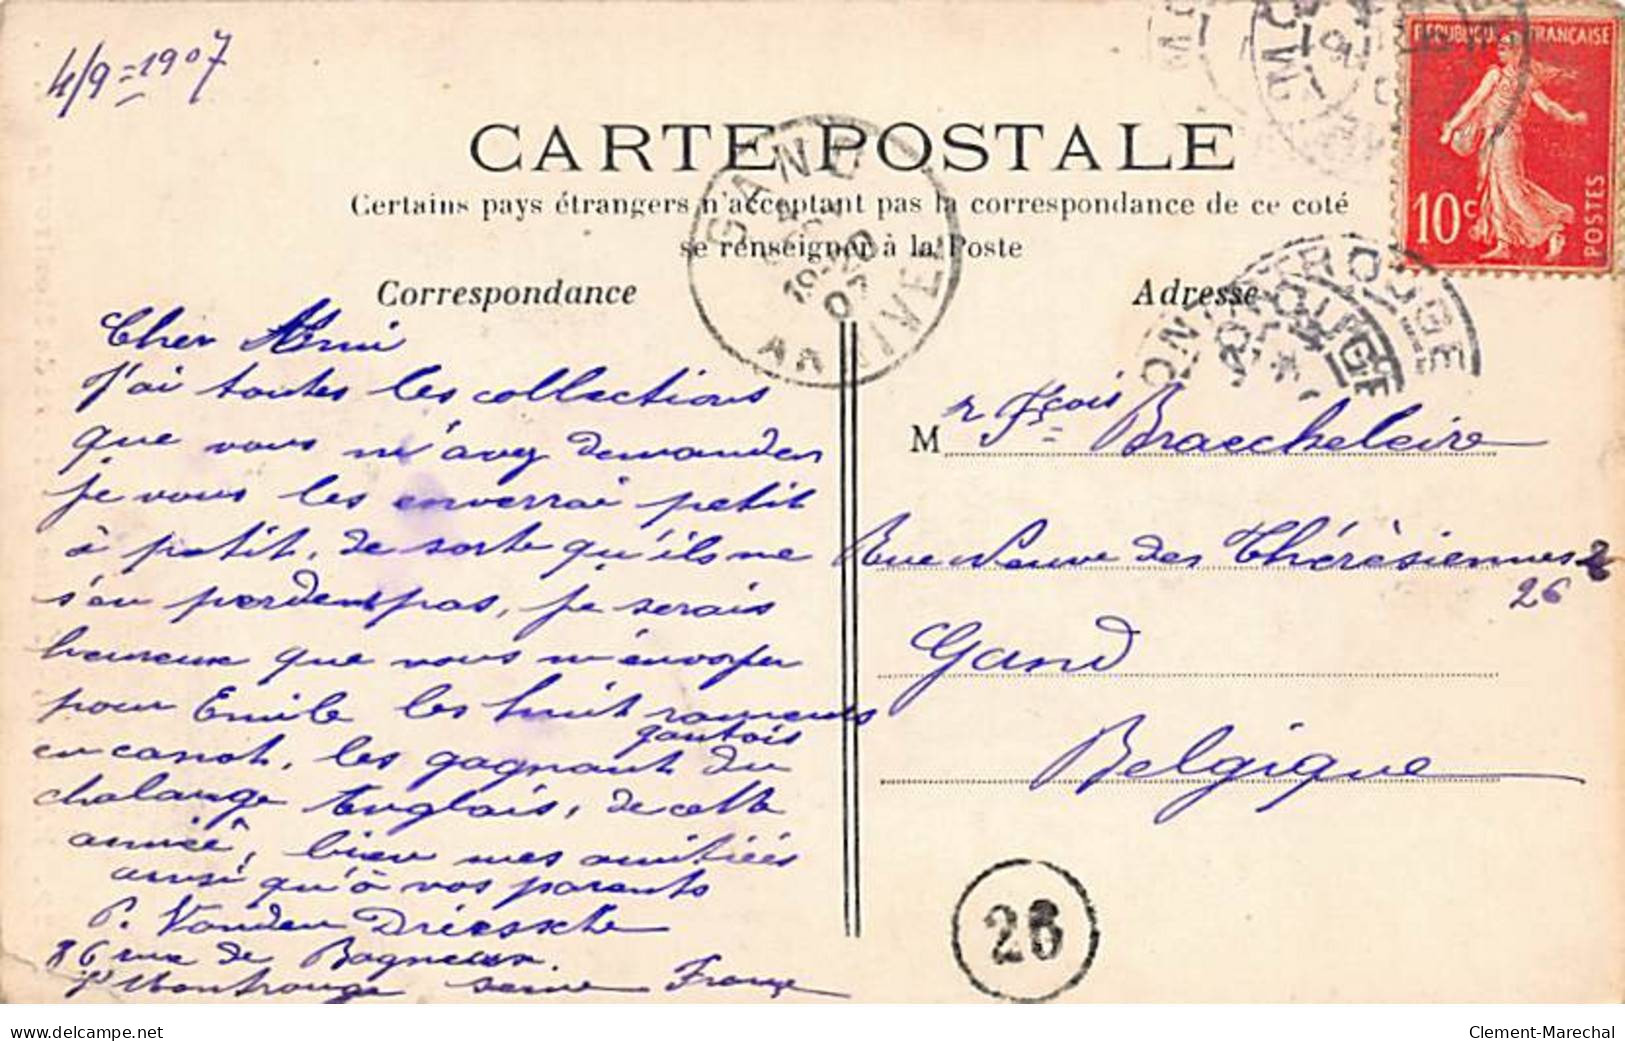 4/9=1907
RÉPUBLIQUE FRANÇAISE
10c
POSTES
CARTE POSTALE
Certains pays étrangers n'acceptent pas la correspondance de ce coté
se renseigner à la Poste
Correspondance
Adresse
GAND
MONTROUGE
Cher Ami
j'ai toutes les collections
que vous m'avez demander
je vous les enverrai petit
à petit, de sorte qu'ils ne
s'en perdent pas, je serais
heureux que vous m'envoyer
pour Emile les huit rameurs
gantois
en canot, les gagnant du
chalange Anglais, de cette
année, bien mes amitiées
ainsi qu'à vos parents
P. Vanden Driessche
86 rue de Bagneux
Pt Montrouge Seine France
Mr Fçois Braecheleire
Rue Neuve des Thérèsiennes
26
Gand
Belgique
26
www.delcampe.net
Clement-Marechal